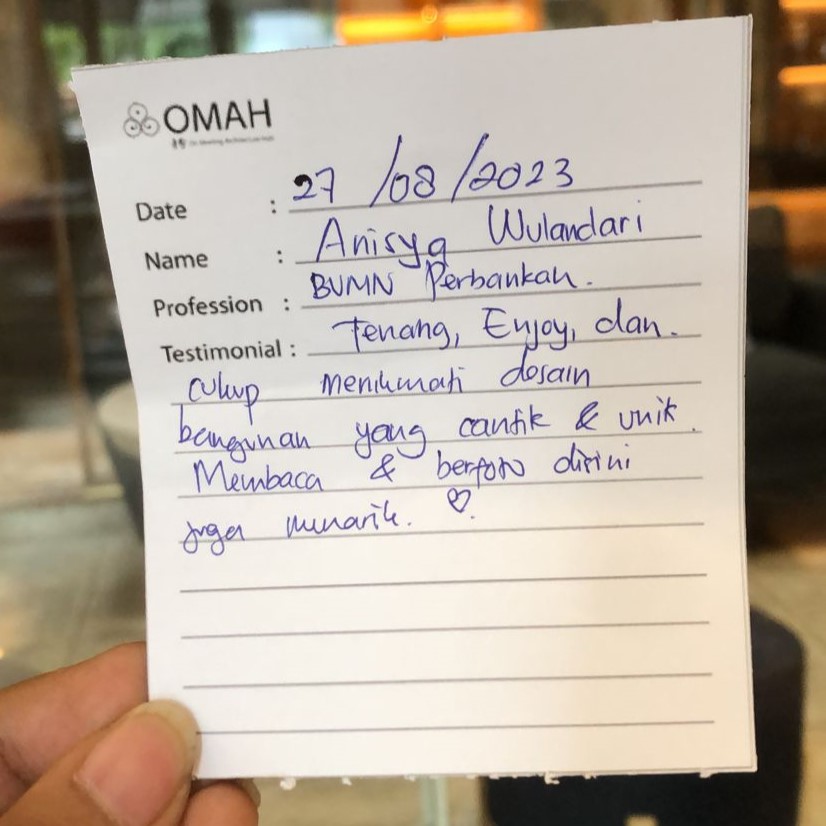 OMAH
Date : 27/08/2023
Name : Anisya Wulandari
Profession : BUMN Perbankan.
Testimonial : Tenang, Enjoy, dan.
cukup menikmati desain
bangunan yang cantik & unik.
Membaca & berfoto disini
juga menarik. ♡